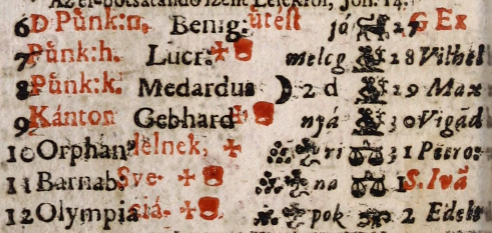 Az el-botsátandó izent Lélekröl, Joh. 14.
6 D Pűnk:n. Benig: ütést já 27 G Ex
7 Pűnk:h. Lucr: meleg 28 Vilhel
8 Pűnk:k. Medardus 2 d 29 Max
9 Kántor Gebhard nyá 30 Vigád
10 Orphan: lelnek, ri 31 Petro:
11 Barnab: Sve- na 1 S. Ivã
12 Olympia siá. pok 2 Edelt